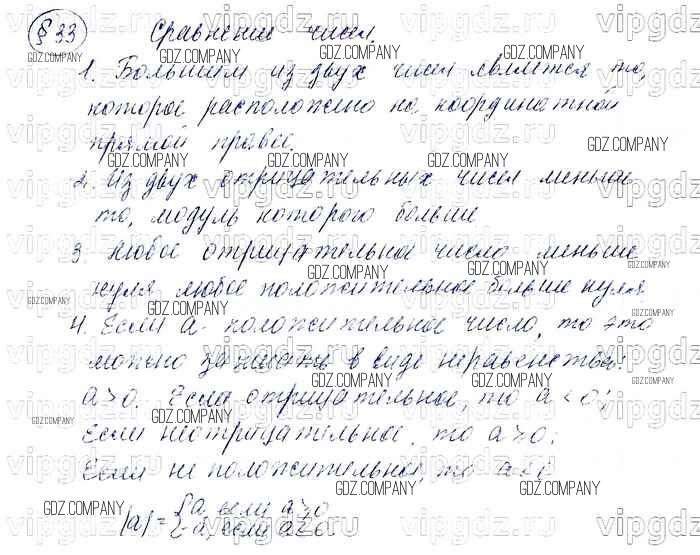 § 33 Сравнение чисел.
1. Большим из двух чисел является то,
которое расположено на координатной
прямой правее.
2. Из двух отрицательных чисел меньше
то, модуль которого больше
3. Любое отрицательное число меньше
нуля любое положительное больше нуля
4. Если a - положительное число, то это
можно записать в виде неравенства:
a > 0. Если отрицательное, то a < 0;
Если неотрицательное, то a ≥ 0;
Если не положительное, то a ≤ 0
|a| = { a, если a ≥ 0
-a, если a < 0.
vipgdz.ru
GDZ.COMPANY